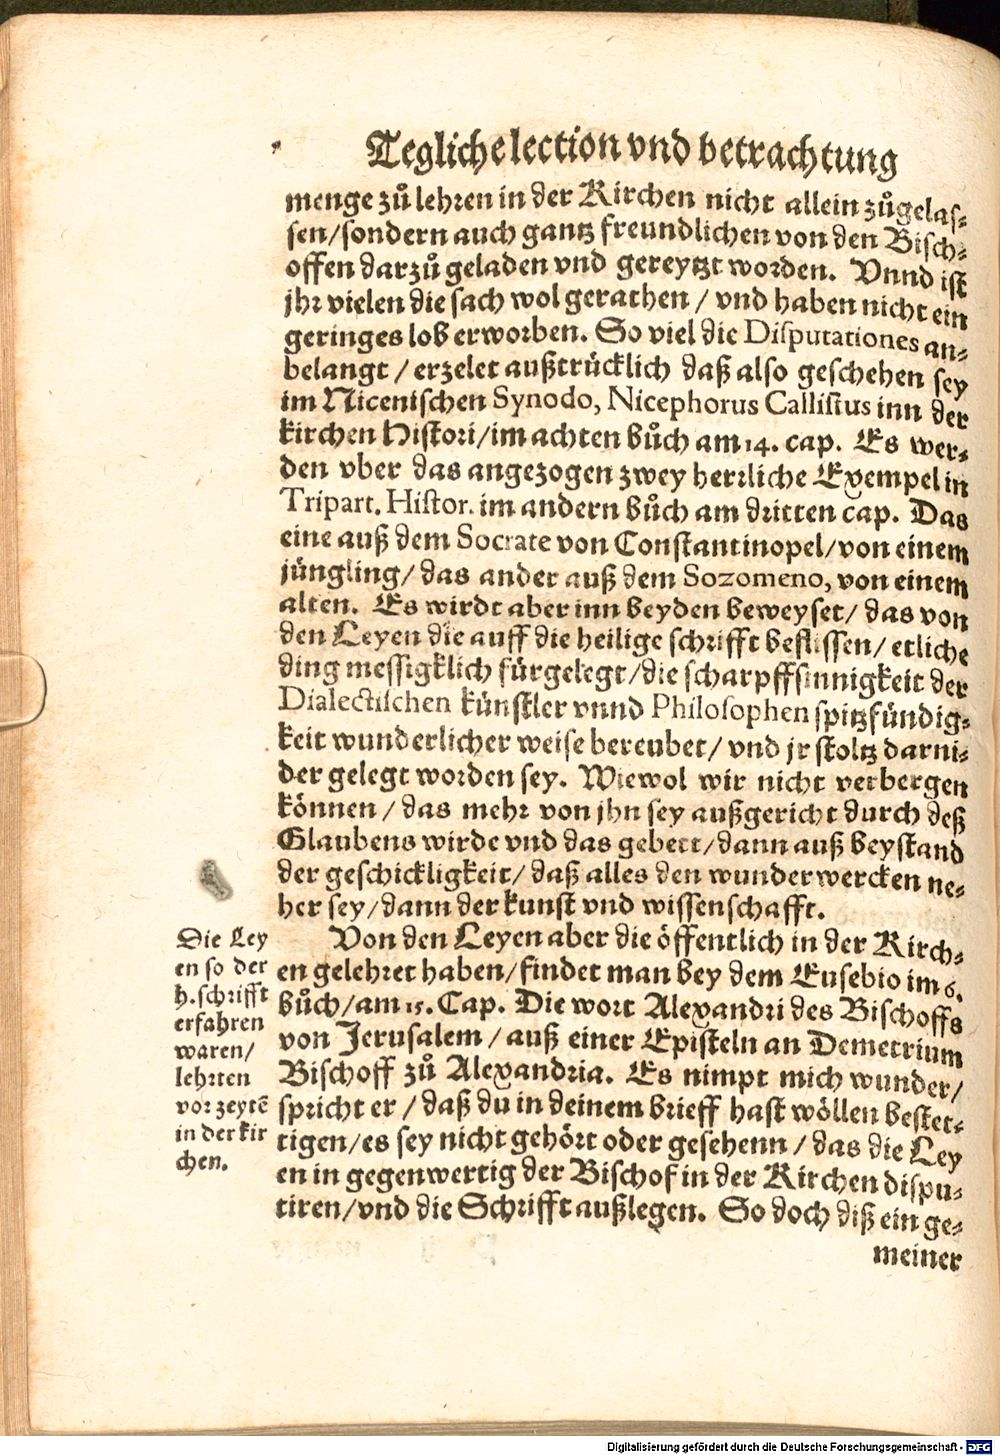 Tegliche lection vnd betrachtung
menge zů lehren in der Kirchen nicht allein zůgelas-
sen/sondern auch gantz freundlichen von den Bisch-
offen darzů geladen vnd gereytzt worden. Vnnd ist
jhr vielen die sach wol gerathen / vnd haben nicht ein
geringes lob erworben. So viel die Disputationes an-
belangt / erzelet außtrücklich daß also geschehen sey
im Nicenischen Synodo, Nicephorus Callistus inn der
kirchen Histori/im achten bůch am 14. cap. Es wer-
den vber das angezogen zwey herrliche Exempel in
Tripart. Histor. im andern bůch am dritten cap. Das
eine auß dem Socrate von Constantinopel/von einem
jüngling/ das ander auß dem Sozomeno, von einem
alten. Es wirdt aber inn beyden beweyset/ das von
den Leyen die auff die heilige schrifft beflissen/ etliche
ding messigklich fürgelegt/die scharpffsinnigkeit der
Dialectischen künstler vnnd Philosophen spitzfündig-
keit wunderlicher weise beteubet/ vnd jr stoltz darni-
der gelegt worden sey. Wiewol wir nicht verbergen
können / das mehr von jhn sey außgericht durch deß
Glaubens wirde vnd das gebett/dann auß beystand
der geschickligkeit/ daß alles den wunderwercken ne-
her sey/dann der kunst vnd wissenschafft.
Von den Leyen aber die öffentlich in der Kirch-
en gelehret haben/findet man bey dem Eusebio im 6.
bůch/am 15. Cap. Die wort Alexandri des Bischoffs
von Jerusalem / auß einer Episteln an Demetrium
Bischoff zů Alexandria. Es nimpt mich wunder/
spricht er / daß du in deinem brieff hast wöllen bestet-
tigen/es sey nicht gehört oder gesehenn / das die Ley
en in gegenwertig der Bischof in der Kirchen dispu-
tiren/vnd die Schrifft außlegen. So doch diß ein ge-
meiner
Die Ley
en so der
h. schrifft
erfahren
waren/
lehrten
vor zeytẽ
in der kir
chen.
Digitalisierung gefördert durch die Deutsche Forschungsgemeinschaft - DFG